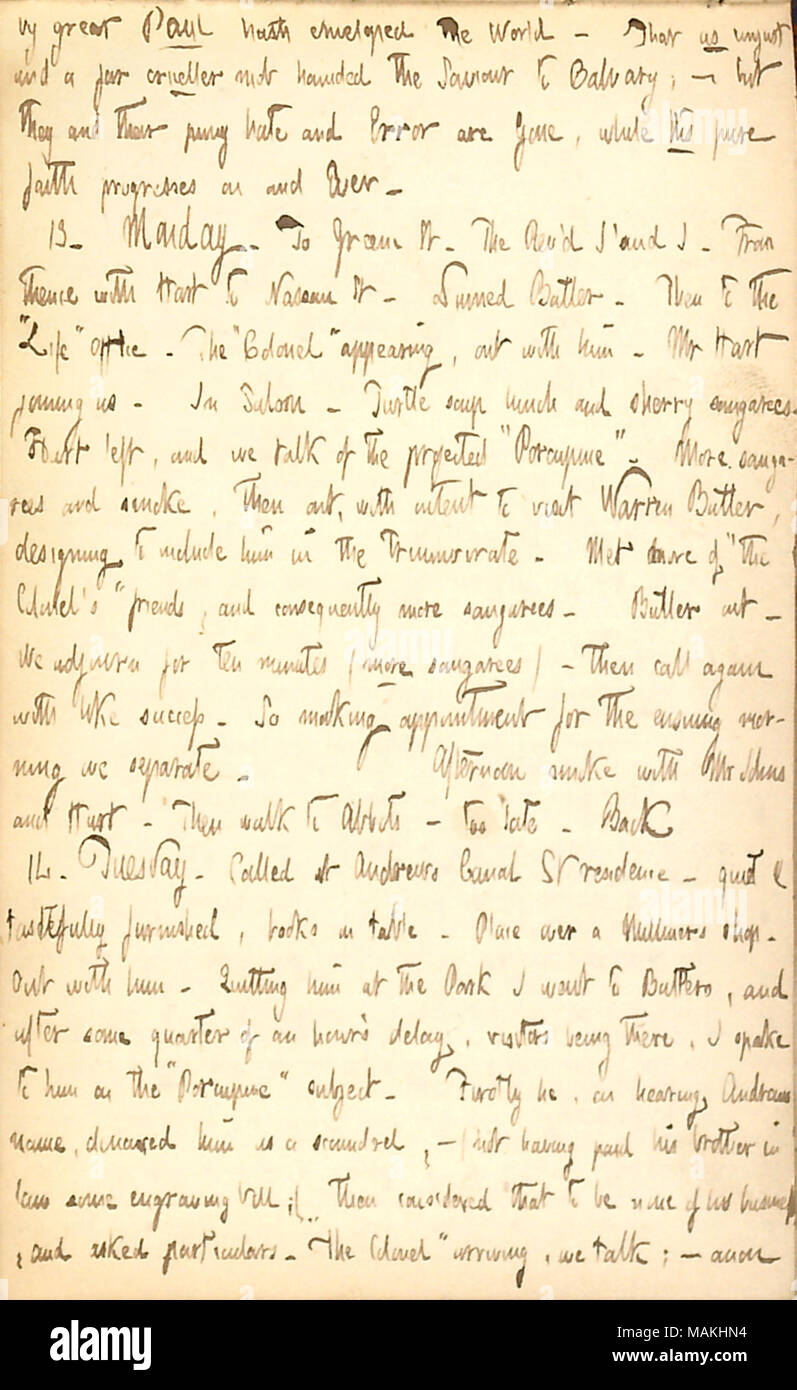 by great Paul hath enveloped the World — That as unjust
and a far crueller mob hounded the Saviour to Calvary; — but
they and their puny hate and Error are gone, while his pure
faith progresses on and Ever —
13 — Monday — To Green St — The Rev'd I and J — From
thence with Hart to Nassau St — Butler — Then to the
"Life" Office — The "Colonel" appearing, out with him — Mr Hart
joining us — In Saloon — Turtle soup lunch and sherry sangarees.
Hart left, and we talk of the projected "Porcupine" — More sanga-
rees and smoke, then out, with intent to visit Warren Butler,
designing to include him in the Triumvirate — Met more of "the
Colonel's" friends, and consequently more sangarees — Butler out —
We adjourn for ten minutes (more sangarees) — then call again
with like success — So making appointment for the ensuing mor-
ning we separate — Afternoon smoke with Mr Johns
and Hart — Then walk to Abbots — too late — Back
14 — Tuesday — Called at Andrews Canal St residence — quiet &
tastefully furnished, books on table — Place over a Milliners shop —
Out with him — Quitting him at the Park I went to Butlers, and
after some quarter of an hour's delay, visitors being there, I spake
to him on the "Porcupine" subject — Firstly he, on hearing Andrews
name, denounced him as a scoundrel, — (not having paid his brother in
law some engraving bill;) then considered that to be none of his business
, and asked particulars — The "Colonel" arriving, we talk; — anon
alamy
Image ID: MAKHN4
www.alamy.com